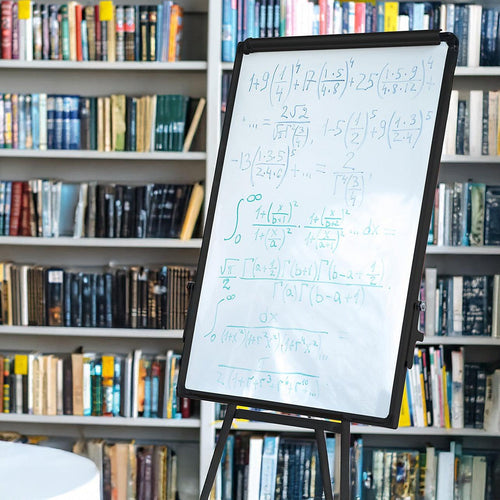 1+9(1/4)^4+17(1·5/4·8)^4+25(1·5·9/4·8·12)^4+
...=2√2/√π Γ²(3/4), 1-5(1/2)^5+9(1·3/2·4)^5
-13(1·3·5/2·4·6)^5+...=2/Γ^4(3/4)
∫_0^∞ (1+(x/b+1)^2)/(1+(x/a)^2)·(1+(x/b+2)^2)/(1+(x/a+1)^2)...dx=
√π/2 Γ(a+1/2)Γ(b+1)Γ(b-a+1/2)/Γ(a)Γ(b-a+1).
∫_0^∞ dx/(1+x^2)(1+r^2x^2)(1+r^4x^2)...
π/2(1+r+r^3+r^6+r^10+...)